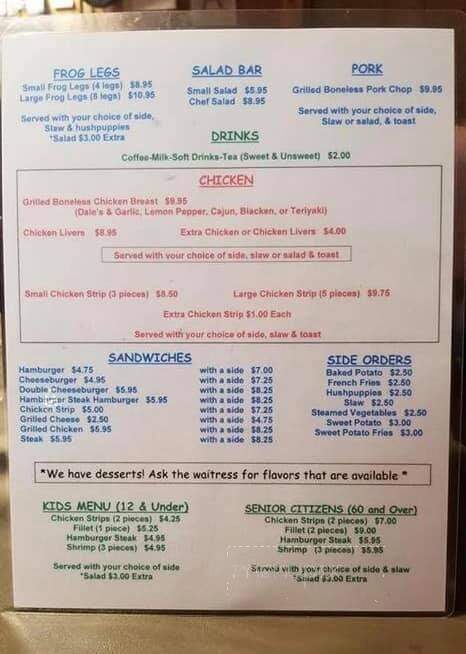 FROG LEGS
Small Frog Legs (4 legs) $8.95
Large Frog Legs (8 legs) $10.95
Served with your choice of side,
Slaw & hushpuppies
*Salad $3.00 Extra
SALAD BAR
Small Salad $5.95
Chef Salad $8.95
PORK
Grilled Boneless Pork Chop $9.95
Served with your choice of side,
Slaw or salad, & toast
DRINKS
Coffee-Milk-Soft Drinks-Tea (Sweet & Unsweet) $2.00
CHICKEN
Grilled Boneless Chicken Breast $9.95
(Dale's & Garlic, Lemon Pepper, Cajun, Blacken, or Teriyaki)
Chicken Livers $8.95 Extra Chicken or Chicken Livers $4.00
Served with your choice of side, slaw or salad & toast
Small Chicken Strip (3 pieces) $8.50 Large Chicken Strip (5 pieces) $9.75
Extra Chicken Strip $1.00 Each
Served with your choice of side, slaw & toast
SANDWICHES
Hamburger $4.75 with a side $7.00
Cheeseburger $4.95 with a side $7.25
Double Cheeseburger $5.95 with a side $8.25
Hamburger Steak Hamburger $5.95 with a side $8.25
Chicken Strip $5.00 with a side $7.25
Grilled Cheese $2.50 with a side $4.75
Grilled Chicken $5.95 with a side $8.25
Steak $5.95 with a side $8.25
SIDE ORDERS
Baked Potato $2.50
French Fries $2.50
Hushpuppies $2.50
Slaw $2.50
Steamed Vegetables $2.50
Sweet Potato $3.00
Sweet Potato Fries $3.00
*We have desserts! Ask the waitress for flavors that are available *
KIDS MENU (12 & Under)
Chicken Strips (2 pieces) $4.25
Fillet (1 piece) $5.25
Hamburger Steak $4.95
Shrimp (3 pieces) $4.95
Served with your choice of side
*Salad $3.00 Extra
SENIOR CITIZENS (60 and Over)
Chicken Strips (2 pieces) $7.00
Fillet (2 pieces) $9.00
Hamburger Steak $5.95
Shrimp (3 pieces) $5.95
Served with your choice of side & slaw
*Salad $3.00 Extra